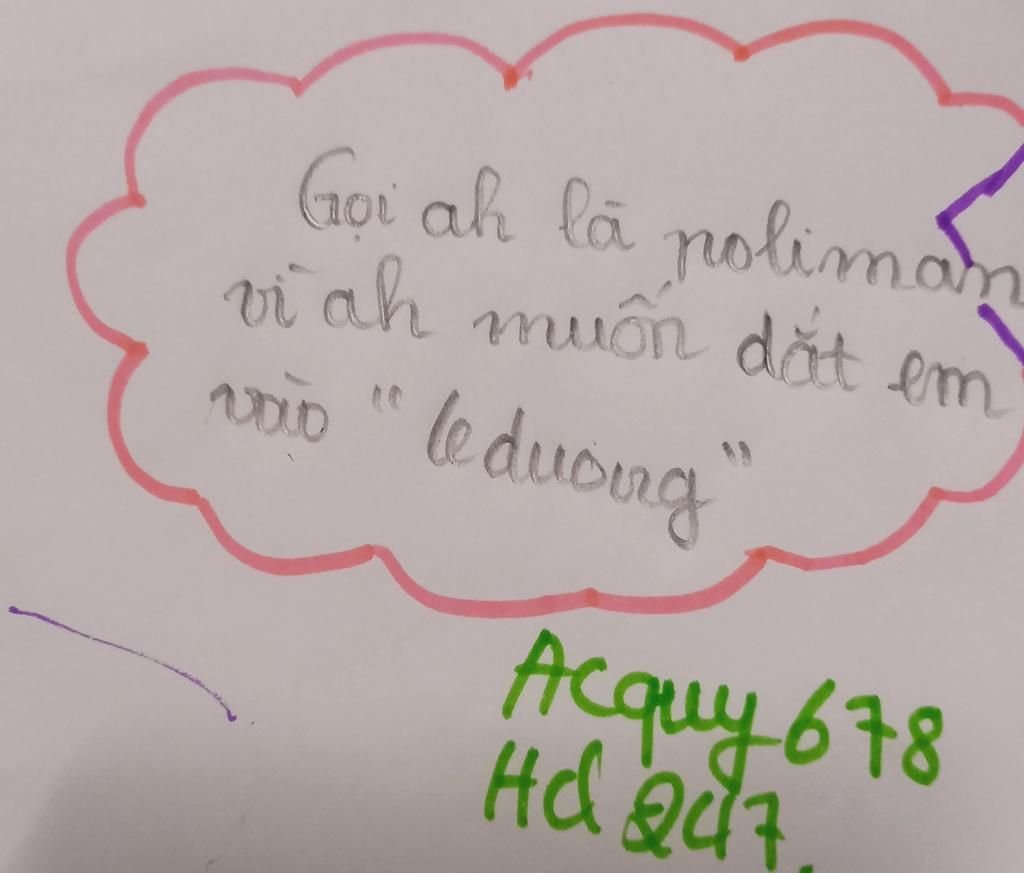 Gọi ah là poliman
vì ah muốn dắt em
vào "leduong"
Acquy 678
Hd 247.